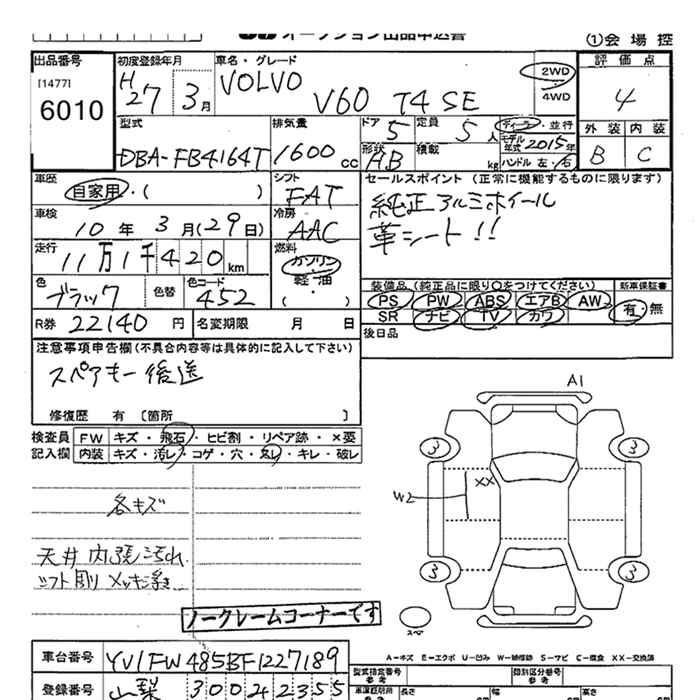 オークション出品申込書
①会 場 控
出品番号
[1477]
6010
初度登録年月
H27 3月
車名・グレード
VOLVO V60 T4 SE
2WD
4WD
評 価 点
4
外 装 内 装
B C
型式
DBA-FB4164T
排気量
1600 cc
ドア 5
定員 5 人
形状 AB
積載 kg
ディーラー・並行
モデル年式 2015年
ハンドル 左・右
車歴
自家用・( )
シフト
FAT
セールスポイント (正常に機能するものに限ります)
純正アルミホイール
革シート!!
車検
10 年 3 月(29 日)
冷房
AAC
走行
11万1千420 km
燃料
ガソリン
軽・油
( ・ )
色
ブラック
色替
色コード
452
装備品(純正品に限り○をつけてください)
PS PW ABS エアB AW
SR ナビ TV カワ
新車保証書
有・無
R券 22140 円
名変期限 月 日
後日品
注意事項申告欄(不具合内容等は具体的に記入して下さい)
スペアキー後送
修復歴 有〔箇所 〕
検査員 FW キズ・飛石・ヒビ割・リペア跡・×要
記入欄 内装 キズ・汚レ・コゲ・穴・スレ・キレ・破レ
各キズ
天井内張汚れ
シフト廻 メッキ浮き
ノークレームコーナーです
A1
3 3
W2
XX
3 3
スペア
A-キズ E-エクボ U-凹み W-補修跡 S-サビ C-腐食 XX-交換済
車台番号 YV1FW485BF1227189
登録番号 山梨 300 そ 2355
型式指定番号
参考
類別区分番号
参考
車庫証明用
参考
長さ
幅
高さ